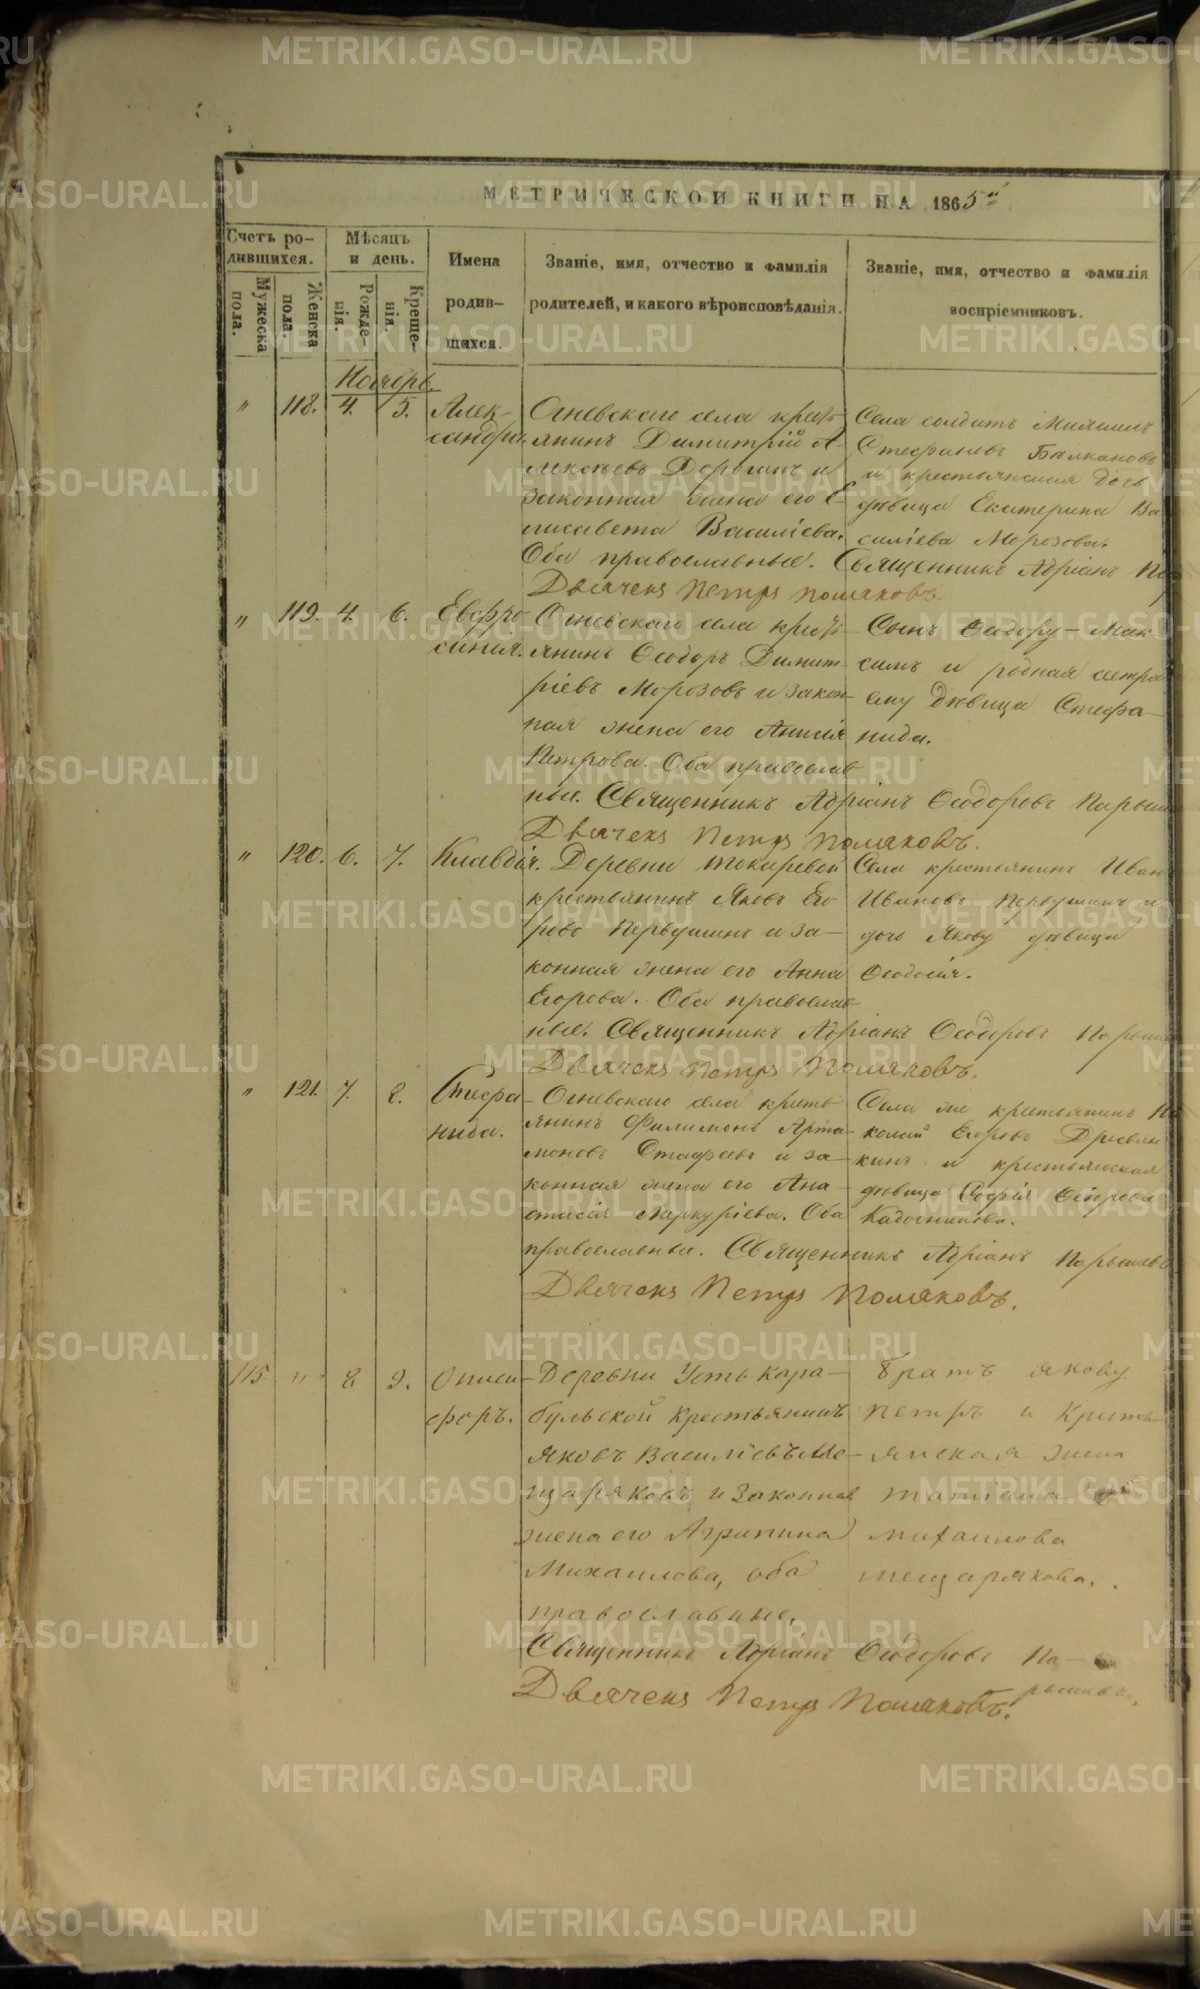 МЕТРИЧЕСКОЙ КНИГИ НА 1865й
Счетъ ро-
дившихся.
Мужеска
пола.
Женска
пола.
Мѣсяцъ
и день.
Рожде-
нія.
Креще-
нія.
Имена
родив-
шихся.
Званіе, имя, отчество и фамилія
родителей, и какого вѣроисповѣданія.
Званіе, имя, отчество и фамилія
воспріемниковъ.
Ноябрь.
" 118. 4. 5.
Алек-
сандра.
Огневскаго села крест-
янинъ Димитрій А-
лексѣевъ и
законная жена его Е-
лисавета Василіева.
Оба православные. Священникъ Адріанъ
Дьячекъ Петръ Поляковъ.
Села солдатъ Михаилъ
Стефановъ
и крестьянская дочь
дѣвица Екатерина Ва
силіева Морозова.
" 119. 4. 6.
Евфро-
синія.
Огневскаго села крест-
янинъ Ѳеодоръ Димит-
ріевъ Морозовъ и закон-
ная жена его Анисія
Петрова. Оба православ
ные. Священникъ Адріанъ Ѳеодоровъ
Дьячекъ Петръ Поляковъ.
Сынъ Ѳеодору – Мак
симъ и родная сестра
ему дѣвица Стефа-
нида.
" 120. 6. 7.
Клавдія.
Деревни Токаревой
крестьянинъ Яковъ Его
ровъ Первушинъ и за-
конная жена его Анна
Егорова. Оба православ
ные. Священникъ Адріанъ Ѳеодоровъ
Дьячекъ Петръ Поляковъ.
Села крестьянинъ Иванъ
Ивановъ Первушинъ и
дочь Якову дѣвица
Ѳеодосія.
" 121. 7. 8.
Стефа-
нида.
Огневскаго села кресть
янинъ Филимонъ Арта-
моновъ и за-
конная жена его Ана-
стасія Меркуріева. Оба
православны. Священникъ Адріанъ Парышевъ
Дьячекъ Петръ Поляковъ.
Села же крестьянинъ Ни
колай Егоровъ
кинъ и крестьянская
дѣвица Софія Ѳедорова
115 " 8 9.
Описи-
форъ.
Деревни Усть кара-
бульской крестьянинъ
Яковъ Василіевъ Ме-
щаряковъ и законная
жена его Агрипина
Михаилова, оба
православные.
Священникъ Адріанъ Ѳеодоровъ Па-
рышевъ.
Дьячекъ Петръ Поляковъ.
братъ якову
петръ и кресть
янская жена
татіана
михаилова
мещарякова.
METRIKI.GASO-URAL.RU